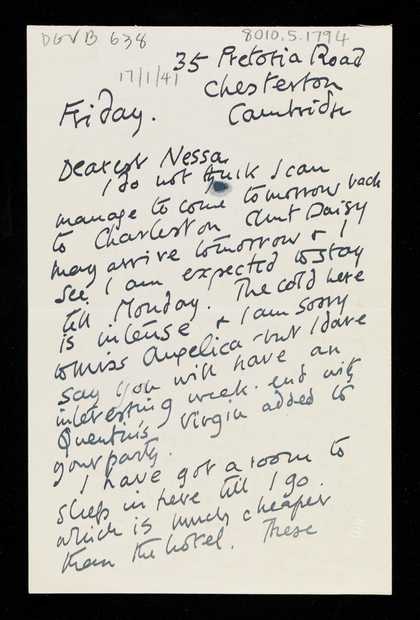 DGVB 638
8010.5.1794
35 Pretoria Road
17/1/41
Chesterton
Friday. Cambridge
Dearest Nessa
I do not think I can
manage to come tomorrow back
to Charleston Aunt Daisy
may arrive tomorrow & I
see I am expected to stay
till Monday. The cold here
is intense & I am sorry
to miss Angelica - but I dare
say you will have an
interesting week-end with
Quentin's Virgin added to
your party.
I have got a room to
sleep in here till I go.
which is much cheaper
than the hotel. These